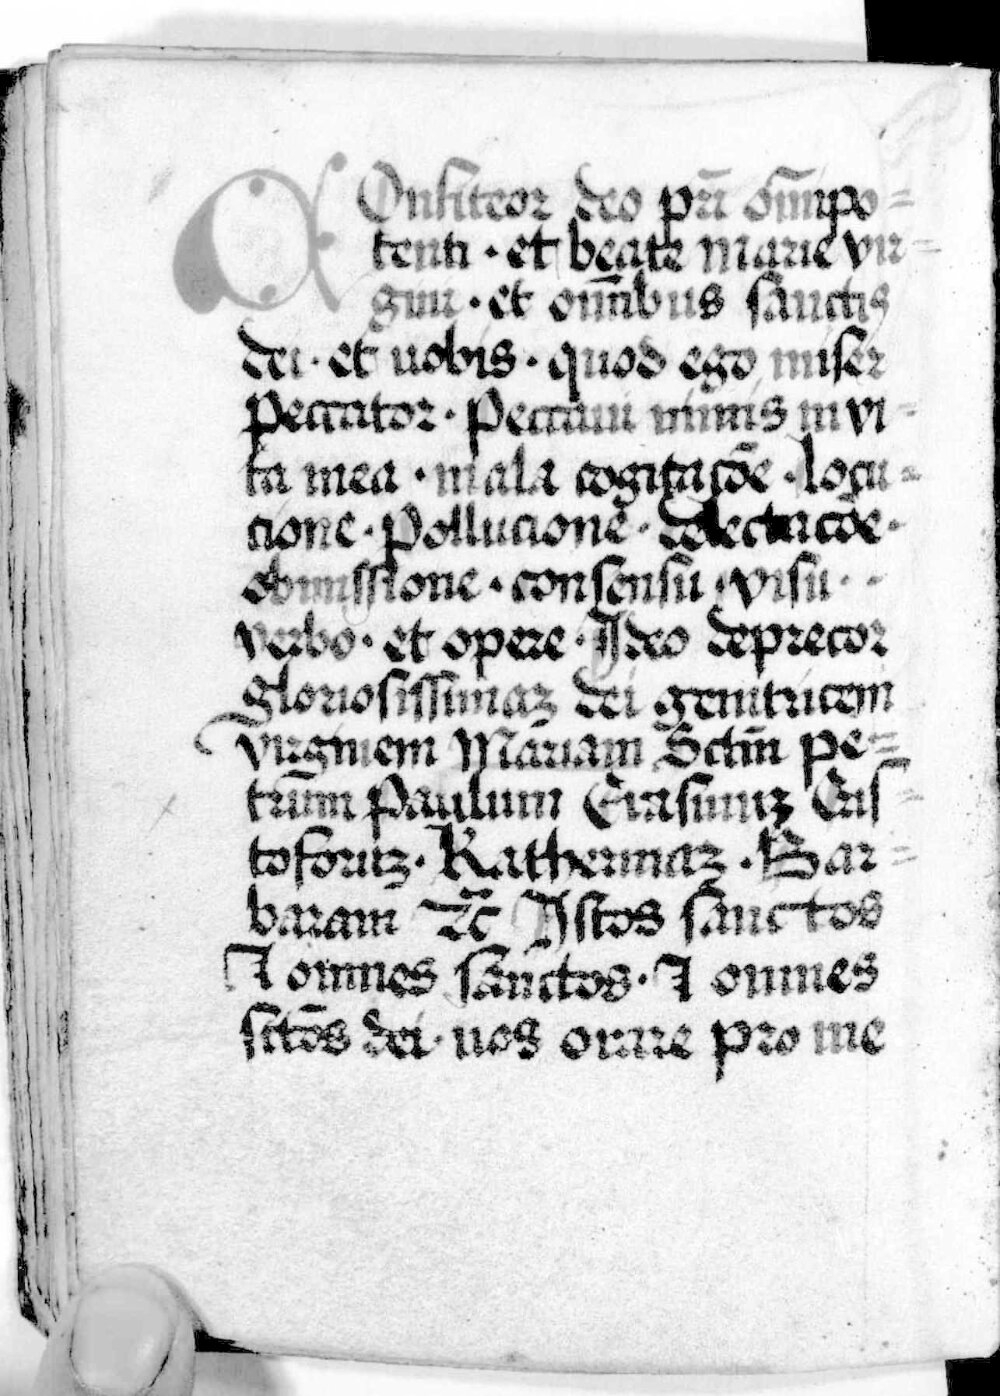 COnfiteor deo pr̄i om̄ipo=
tenti · et beate marie vir=
gini · et om̄ibus sanctis
dei · et uobis · quod ego miser
peccator · Peccaui nimis in vi=
ta mea · mala cogitac̄oe · locu=
cione · Pollucione · delectac̄oe ·
obmissione · consensu · visu ·
verbo · et opere · Ideo deprecor
gloriosissimaꝫ dei genitricem
virginem Mariam Sctm̄ pe=
trum Paulum Erasimuꝫ Cris=
toforuꝫ · Katherinaꝫ · Bar=
baram ⁊c̄ Istos sanctos
⁊ omnes sanctos · ⁊ omnes
sct̄os dei · uos orare pro me